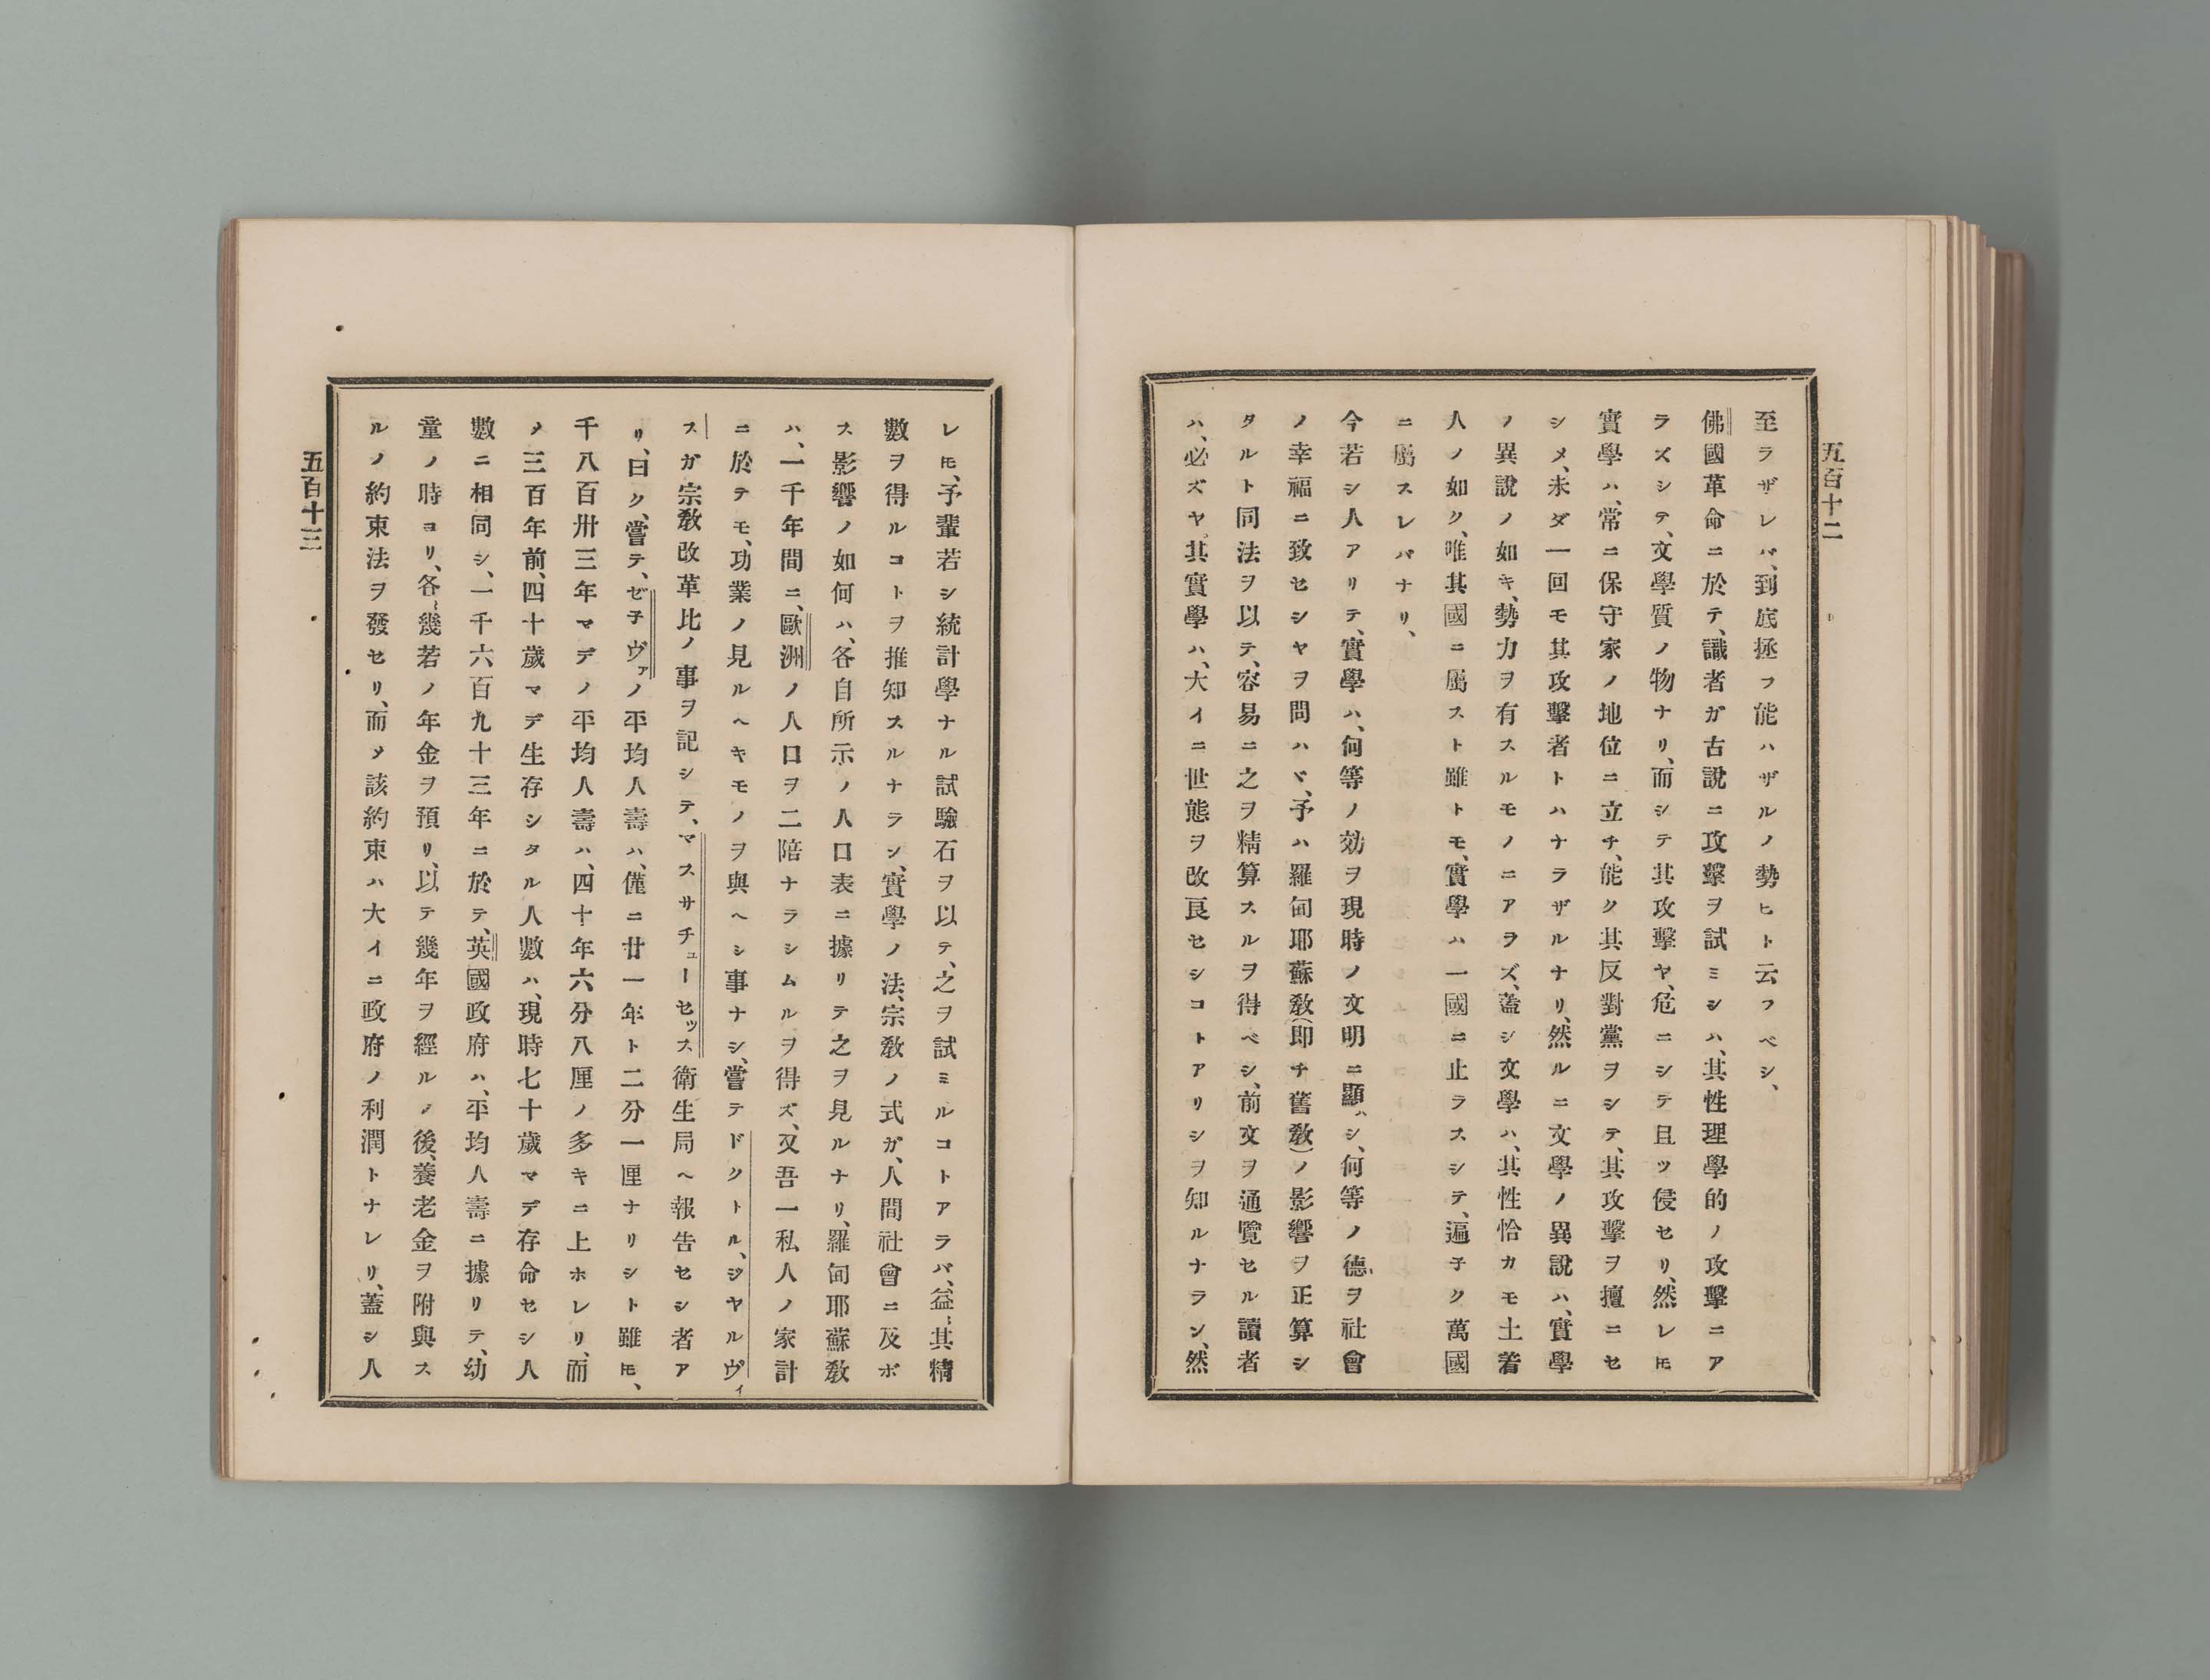 五百十二
至ラザレバ、到底拯フ能ハザルノ勢ヒト云フベシ、
佛國革命ニ於テ、識者ガ古說ニ攻擊ヲ試ミシハ、其性理學的ノ攻擊ニア
ラズシテ、文學質ノ物ナリ、而シテ其攻擊ヤ、危ニシテ且ツ侵セリ、然レ𪜈
實學ハ、常ニ保守家ノ地位ニ立チ、能ク其反對黨ヲシテ、其攻擊ヲ擅ニセ
シメ、未ダ一回モ其攻擊者トハナラザルナリ、然ルニ文學ノ異說ハ、實學
ノ異說ノ如キ、勢力ヲ有スルモノニアラズ、蓋シ文學ハ、其性恰カモ土着
人ノ如ク、唯其國ニ屬スト雖トモ、實學ハ一國ニ止ラスシテ、遍子ク萬國
ニ屬スレバナリ、
今若シ人アリテ、實學ハ、何等ノ効ヲ現時ノ文明ニ顯ハシ、何等ノ德ヲ社會
ノ幸福ニ致セシヤヲ問ハヾ、予ハ羅甸耶蘇敎(即チ舊敎)ノ影響ヲ正算シ
タルト同法ヲ以テ、容易ニ之ヲ精算スルヲ得ベシ、前文ヲ通覽セル讀者
ハ、必ズヤ。其實學ハ、大イニ世態ヲ改良セシコトアリシヲ知ルナラン、然
レ𪜈、予輩若シ統計學ナル試驗石ヲ以テ、之ヲ試ミルコトアラバ、益〻其精
數ヲ得ルコトヲ推知スルナラン、實學ノ法、宗敎ノ式ガ、人間社會ニ及ボ
ス影響ノ如何ハ、各自所示ノ人口表ニ據リテ之ヲ見ルナリ、羅甸耶蘇敎
ハ、一千年間ニ、歐洲ノ人口ヲ二陪ナラシムルヲ得ズ、又吾一私人ノ家計
ニ於テモ、功業ノ見ルヘキモノヲ與ヘシ事ナシ、嘗テドクトル、ジヤルヴィ
スガ宗敎改革比ノ事ヲ記シテ、マスサチューセッス衛生局ヘ報告セシ者ア
リ、曰ク、嘗テ、ゼ子ヴァノ平均人壽ハ、僅ニ廿一年ト二分一厘ナリシト雖𪜈、
千八百卅三年マデノ平均人壽ハ、四十年六分八厘ノ多キニ上ホレリ、而
メ三百年前、四十歲マデ生存シタル人數ハ、現時七十歲マデ存命セシ人
數ニ相同シ、一千六百九十三年ニ於テ、英國政府ハ、平均人壽ニ據リテ、幼
童ノ時ヨリ、各〻幾若ノ年金ヲ預リ、以テ幾年ヲ經ルノ後、養老金ヲ附與ス
ルノ約束法ヲ發セリ、而メ該約束ハ大イニ政府ノ利潤トナレリ、蓋シ人
五百十三